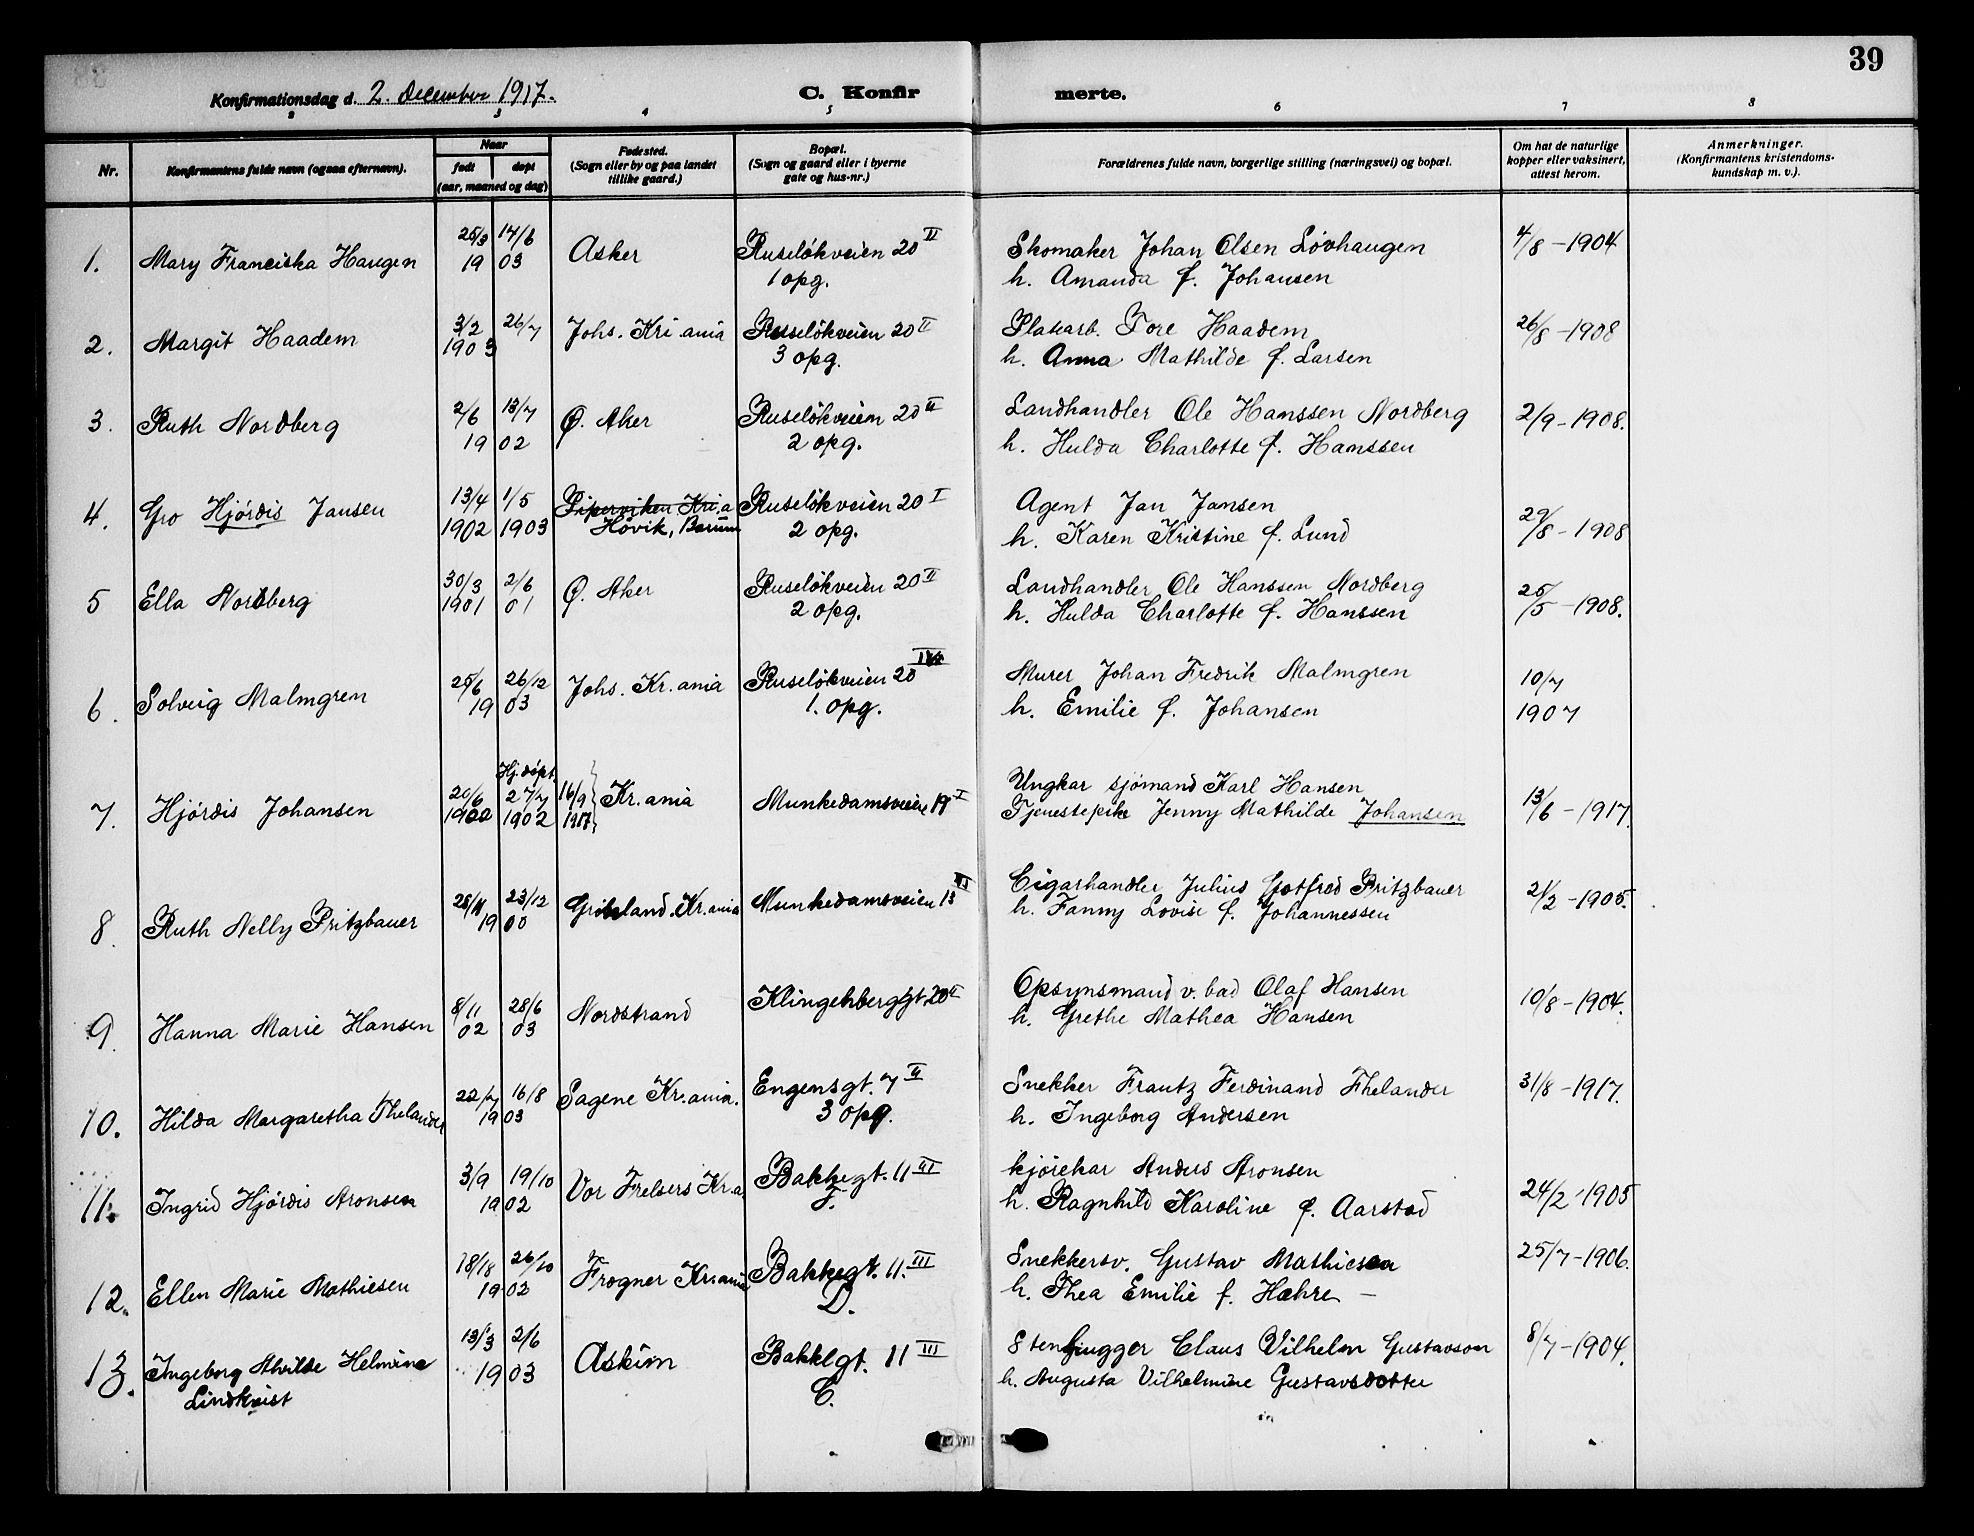 39
Konfirmationsdag d. 2. december 1917.
C. Konfir merte.
2 3 4 5 6 7 8
Nr.
Konfirmantens fulde navn (ogsaa efternavn).
Naar
født døpt
(aar, maaned og dag)
Fødested.
(Sogn eller by og paa landet
tillike gaard.)
Bopæl.
(Sogn og gaard eller i byerne
gate og hus-nr.)
Forældrenes fulde navn, borgerlige stilling (næringsvei) og bopæl.
Om hat de naturlige
kopper eller vaksinert,
attest herom.
Anmerkninger.
(Konfirmantens kristendoms-
kundskap m. v.).
1. Mary Franciska Haugen 25/3 14/6 19 03 Asker Ruseløkveien 20 II
1 opg.
Skomaker Johan Olsen Løvhaugen 4/8 - 1904
h. Amanda f. Johansen
2. Margit Haadem 3/2 26/7 1903 Johs. Kri ania Ruseløkveien 20 II
3 opg.
Platearb. Tore Haadem 26/8 - 1908
h. Anna Mathilde f. Larsen
3. Ruth Nordberg 2/6 13/7 19 02 Ø. Aker Ruseløkveien 20 II
2 opg.
Landhandler Ole Hanssen Nordberg 2/9 - 1908.
h. Hulda Charlotte f. Hanssen
4. Gro Hjørdis Jansen 13/4 1/5 1902 1903 Piperviken Kri.a Ruseløkveien 20 I
Høvik, Bærum 2 opg.
Agent Jan Jansen 29/8 - 1908
h. Karen Kristine f. Lund
5 Ella Nordberg 30/3 2/6 1901 01 Ø. Aker Ruseløkveien 20 II
2 opg.
Landhandler Ole Hanssen Nordberg 25/5 - 1908.
h. Hulda Charlotte f. Hanssen
6. Solveig Malmgren 25/6 26/12 19 03 Johs. Kr. ania Ruseløkveien 20
1. opg.
Murer Johan Fredrik Malmgren 10/7
h. Emilie f. Johansen 1907
7. Hjørdis Johansen 20/6 1902 Hj. døpt 27/7 1902 16/9 1917 Kr. ania Munkedamsveien 19 I
Ungkar sjømand Karl Hansen 13/6 - 1917.
Tjenestepike Jenny Mathilde Johansen
8. Ruth Nelly Pritzbauer 23/12 19 00 Grønland Kr. ania Munkedamsveien 13
Cigarhandler Julius Gotfred Pritzbauer 21/2 - 1905.
h. Fanny Lovise f. Johannessen
9. Hanna Marie Hansen 8/11 28/6 02 03 Nordstrand Klingenberggt. 20 II
Opsynsmand v. bad Olaf Hansen 10/8 - 1904.
h. Grethe Mathea Hansen
10. Hilda Margaretha Thelander 22/7 16/8 19 03 Sagene Kr. ania. Engensgt. 7 II
3 opg.
Snekker Frantz Ferdinand Thelander 31/8 - 1917.
h. Ingeborg Andersen
11. Ingrid Hjørdis Aronsen 3/9 19/10 19 02 Vor Frelsers Kr.a Bakkegt. 11 III
F.
kjørekar Anders Aronsen
h. Ragnhild Karoline f. Aarstad 24/2 - 1905
12. Ellen Marie Mathiesen 18/18 26/10 19 02 Frogner Kr. ania Bakkegt. 11. III
D.
Snekkersv. Gustav Mathiesen 25/7 - 1906.
h. Thea Emilie f. Hæhre —
13. Ingeborg Alvilde Helmine 13/3 2/6 19 03 Askim Bakkegt. 11 III
Lindkvist C.
Stenhugger Claus Vilhelm Gustavson 8/7 - 1904.
h. Augusta Vilhelmine Gustavsdotter